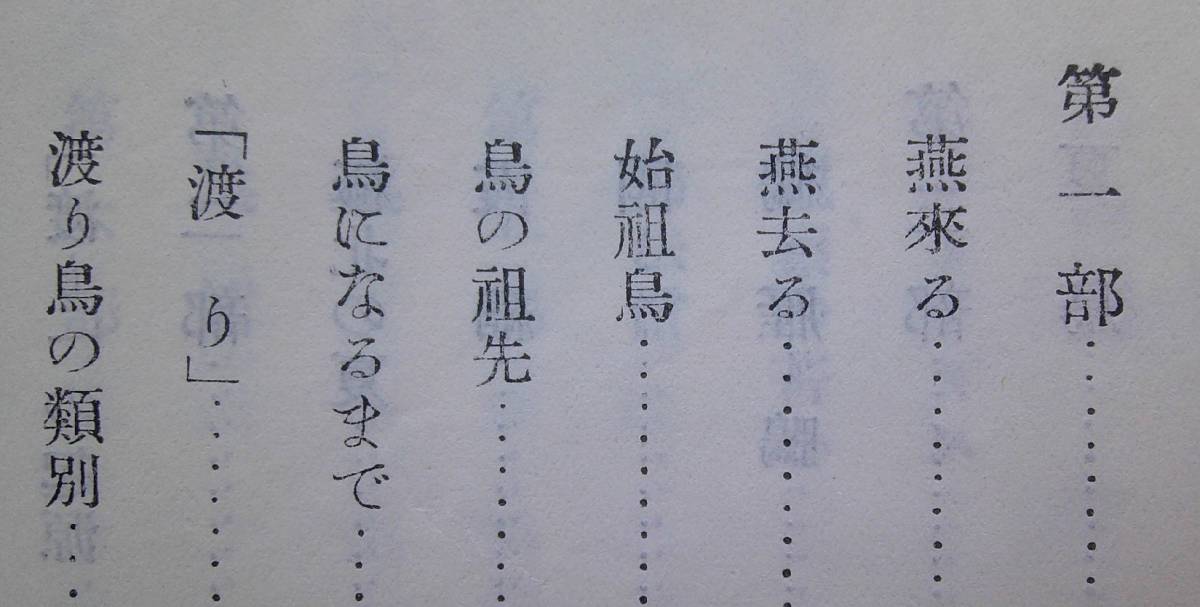 第一部・・・・・・・・・
燕來る・・・・・・・・
燕去る・・・・・・・・・
始祖鳥・・・・・・・・
鳥の祖先・・・・・・・
鳥になるまで・・・
「渡り」・・・・・・・
渡り鳥の類別・・・